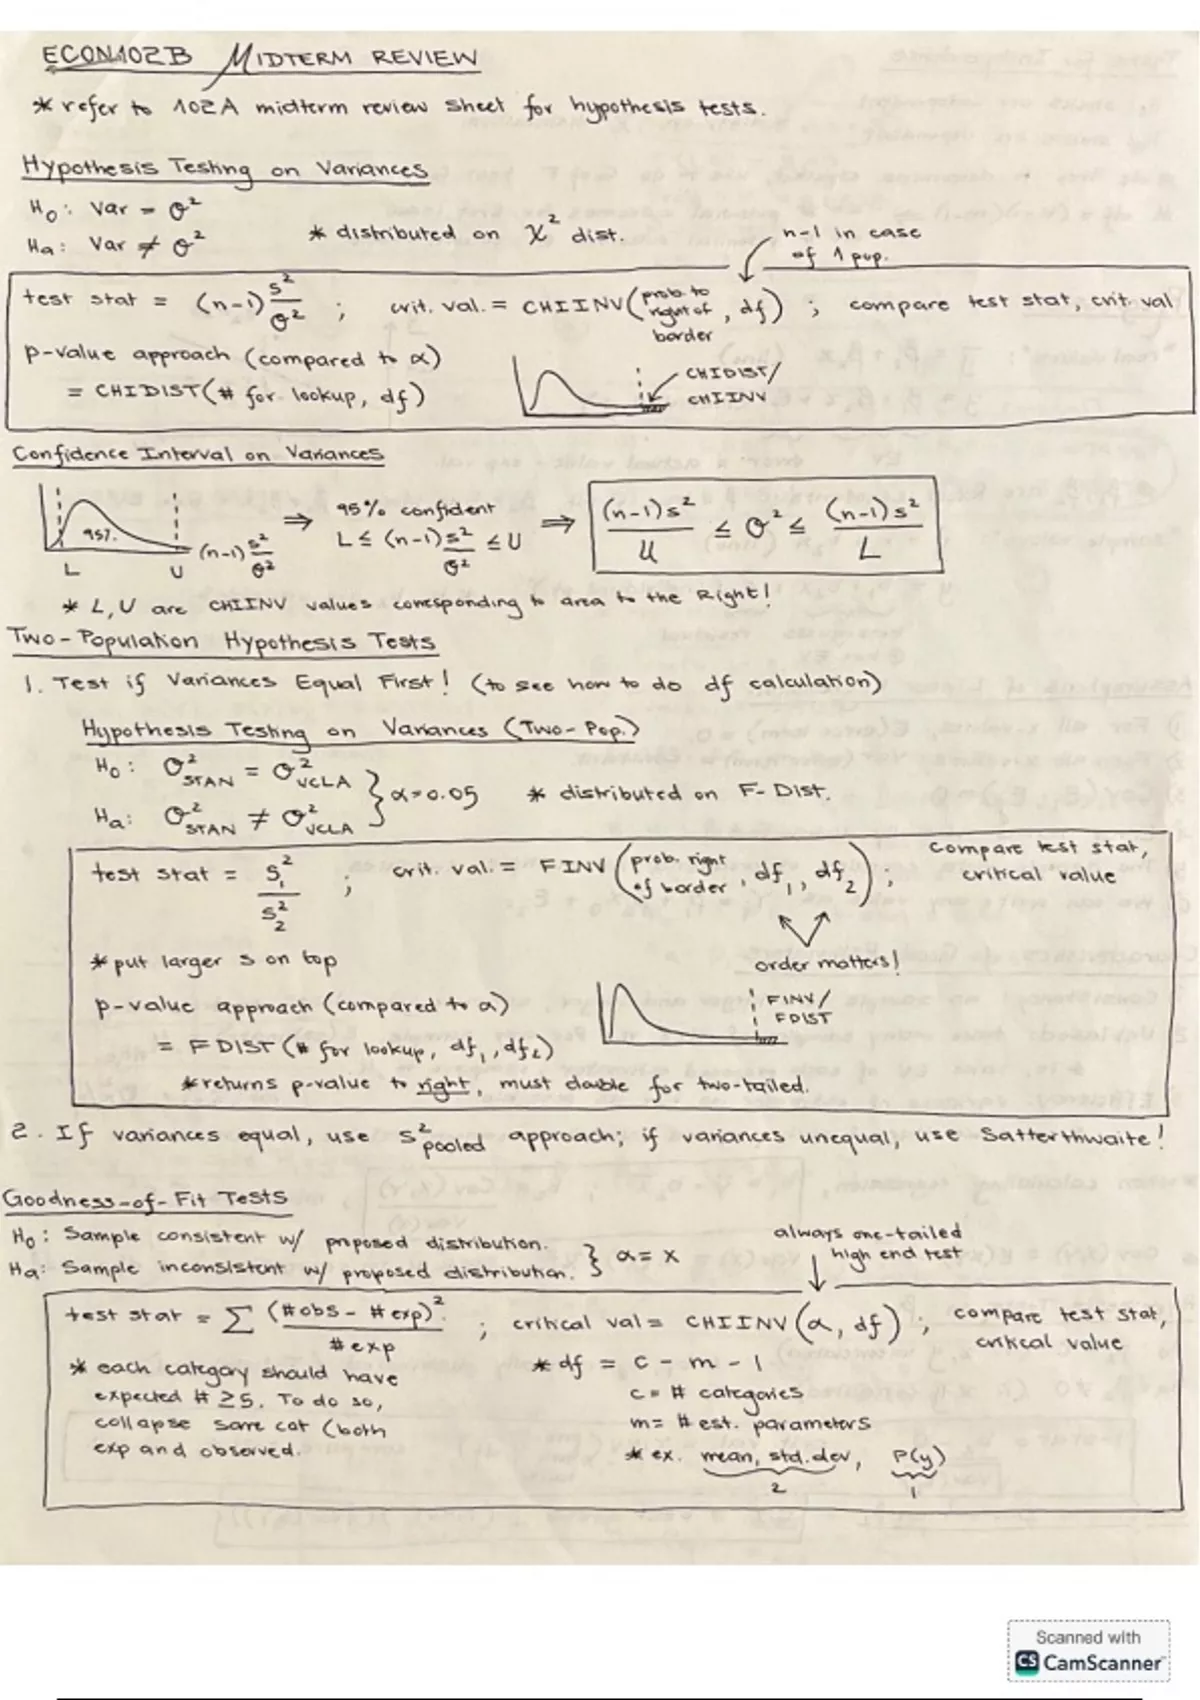 ECON102B MIDTERM REVIEW
* refer to 102A midterm review sheet for hypothesis tests.
Hypothesis Testing on Variances
H₀: Var = σ²
Hₐ: Var ≠ σ²
* distributed on χ² dist.
n-1 in case
of 1 pop.
test stat = (n-1) s²/σ² ; crit. val. = CHIINV(prob. to right of border, df) ; compare test stat, crit. val
p-value approach (compared to α)
= CHIDIST(# for lookup, df)
CHIDIST/
CHIINV
Confidence Interval on Variances
95%
L U (n-1) s²/σ²
⇒ 95% confident
L ≤ (n-1) s²/σ² ≤ U
⇒ (n-1)s²/U ≤ σ² ≤ (n-1)s²/L
* L, U are CHIINV values corresponding to area to the Right!
Two-Population Hypothesis Tests
1. Test if Variances Equal First! (to see how to do df calculation)
Hypothesis Testing on Variances (Two-Pop.)
H₀: σ²STAN = σ²UCLA
Hₐ: σ²STAN ≠ σ²UCLA
} α=0.05 * distributed on F-Dist.
test stat = s₁²/s₂² ; crit. val. = FINV(prob. right of border, df₁, df₂) ; compare test stat, critical value
order matters!
*put larger s on top
p-value approach (compared to α)
= FDIST(# for lookup, df₁, df₂)
*returns p-value to right, must double for two-tailed.
FINV/
FDIST
2. If variances equal, use s²pooled approach; if variances unequal, use Satterthwaite!
Goodness-of-Fit Tests
H₀: Sample consistent w/ proposed distribution.
Hₐ: Sample inconsistent w/ proposed distribution.
} α = x
always one-tailed
high end test
test stat = Σ (#obs - #exp)²/#exp ; critical val = CHIINV(α, df) ; compare test stat, critical value
* each category should have
expected # ≥5. To do so,
collapse some cat (both
exp and observed.
* df = c - m - 1
c = # categories
m = # est. parameters
* ex. mean, std.dev, P(y)
2 1
Scanned with
CS CamScanner